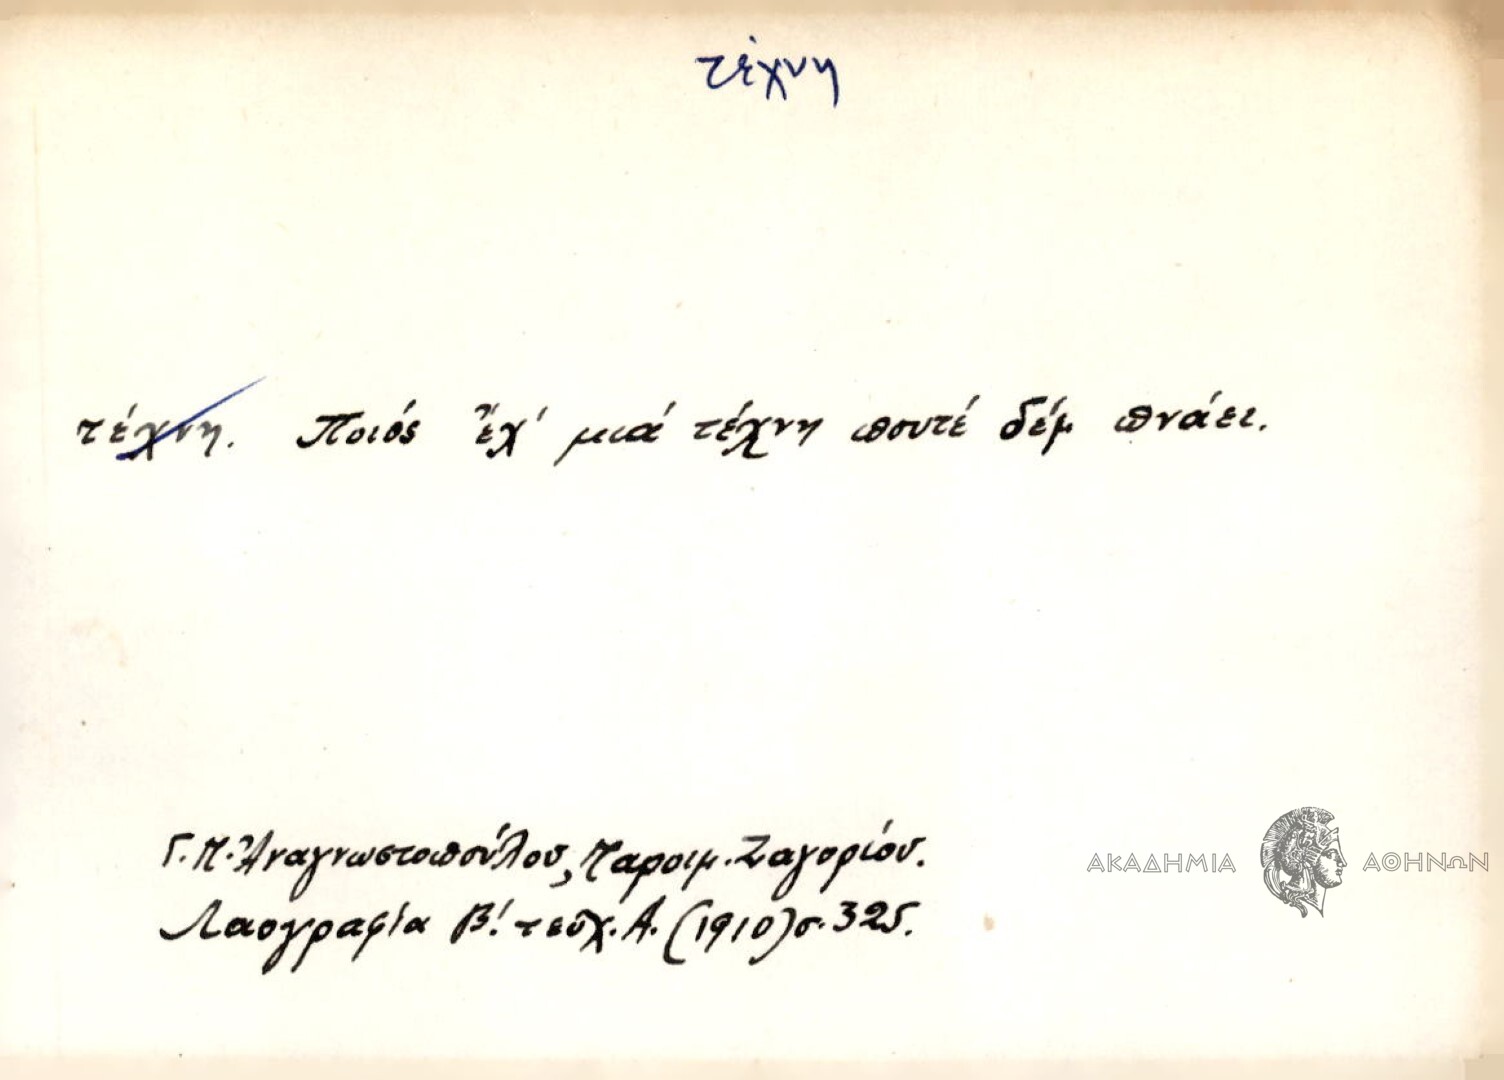 τέχνη
τέχνη. Ποιός ἔχ' μιά τέχνη ποντέ δέμ πνάει.
Γ. Π. Ἀναγνωστοπούλου, Παροιμ. Ζαγορίου.
Λαογραφία Β! τεῦχ. Α. (1910) σ. 325.
ΑΚΑΔΗΜΙΑ ΑΘΗΝΩΝ